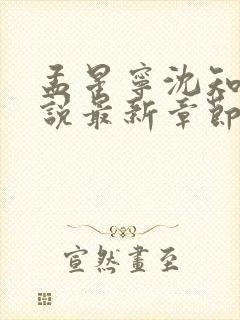 孟星宁沈知
說最新章節
宣然畫至